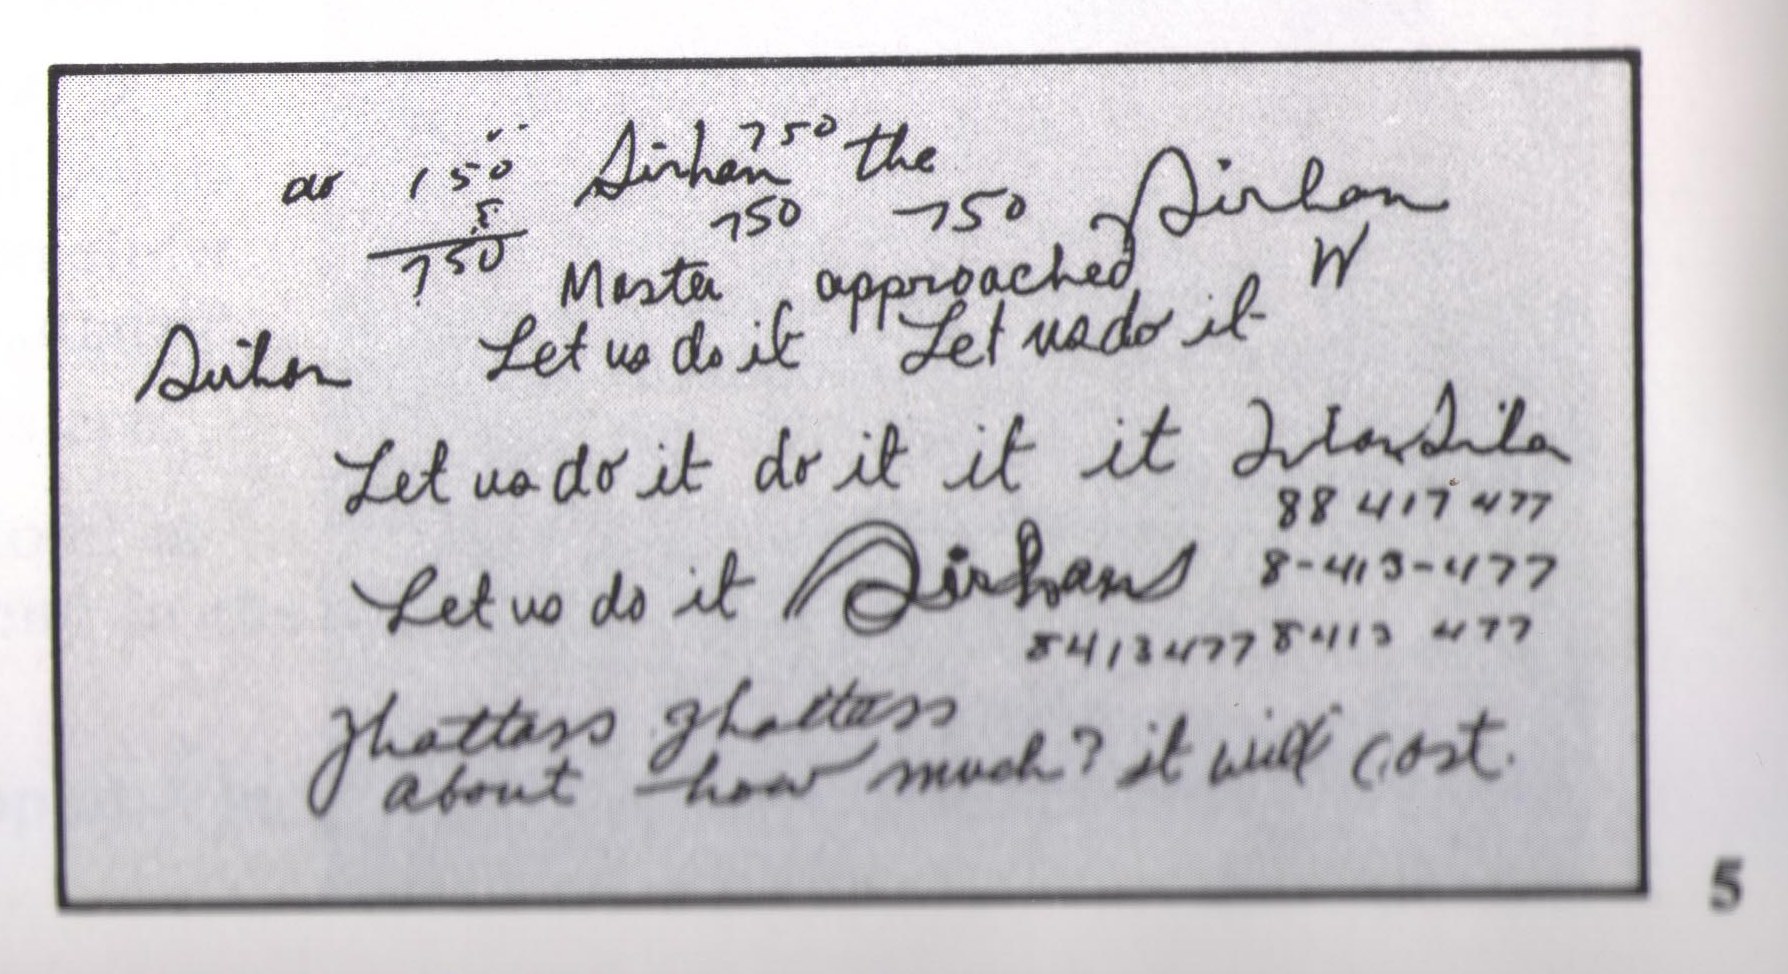 as 150 Sirhan 750 the
5 750 750 Sirhan
750 Master approached W
Sirhan Let us do it Let us do it
Let us do it do it it it
88 417 477
Let us do it Sirhan 8-413-477
8413477 8413 477
Ghattass Ghattass
about how much? it will cost.
5